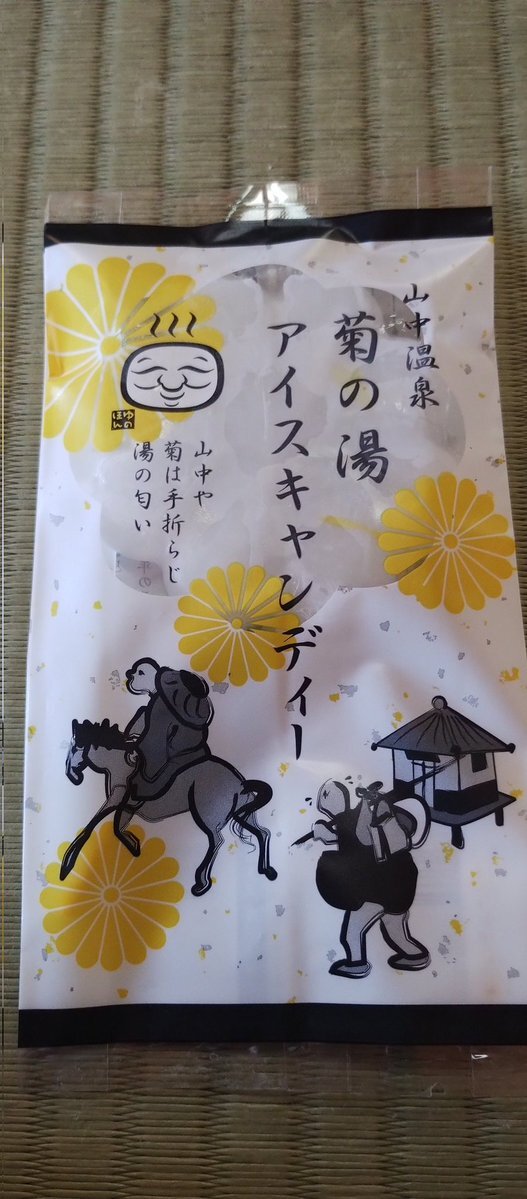 山中温泉
菊の湯
アイスキャンディー
山中や
菊は手折らじ
湯の匂い
ゆの
ほん